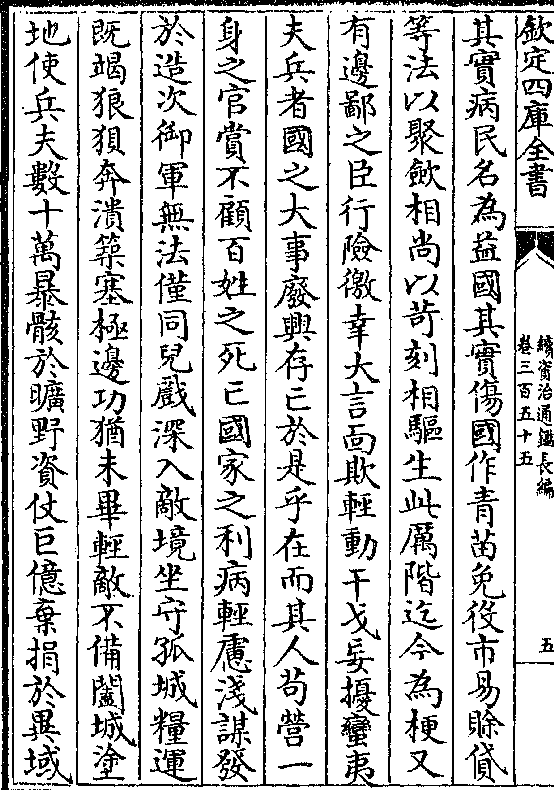 欽定四庫全書
續資治通鑑長編
卷三百五十五
五
其實病民名為益國其實傷國作青苗免役市易賒貸
等法以聚歛相尚以苛刻相驅生此厲階迄今為梗又
有邊鄙之臣行險徼幸大言面欺輕動干戈妄擾蠻夷
夫兵者國之大事廢興存亡於是乎在而其人茍營一
身之官賞不顧百姓之死亡國家之利病輕慮淺謀發
於造次御軍無法僅同兒戲深入敵境坐守孤城糧運
既竭狼狽奔潰築塞極邊功猶未畢輕敵不備闔城塗
地使兵夫數十萬暴骸於曠野資仗巨億棄捐於異域